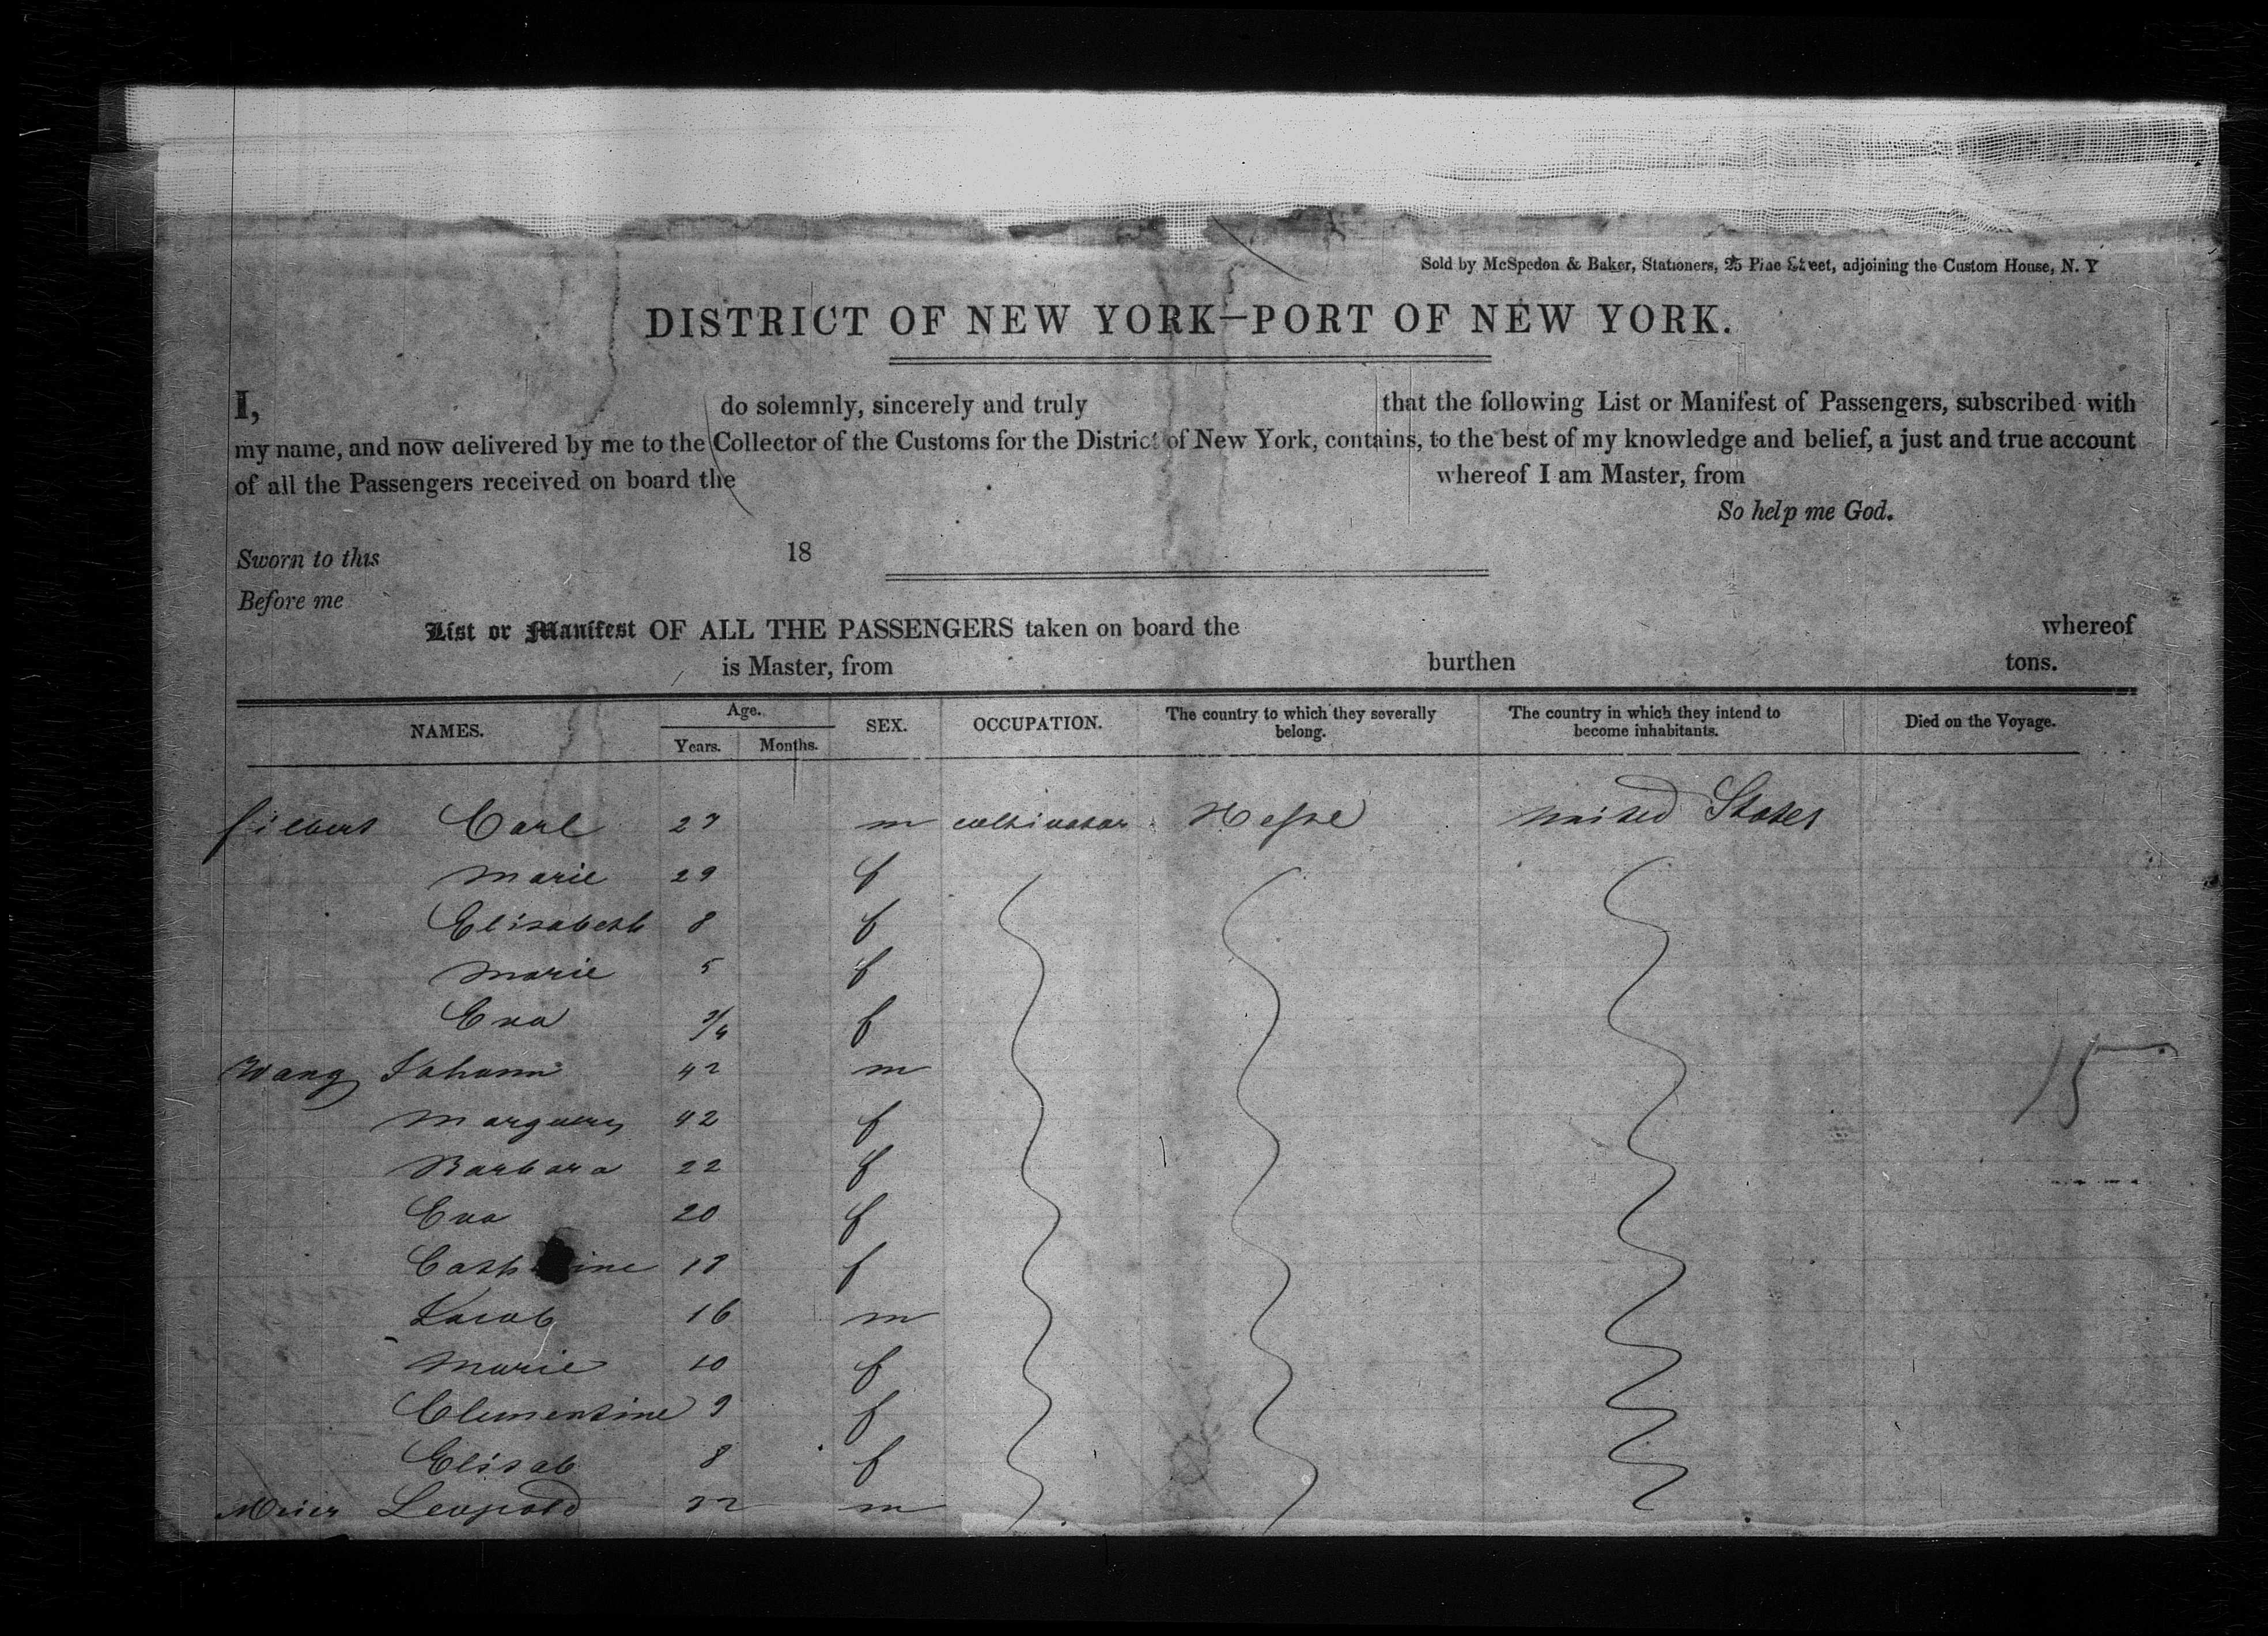 Sold by McSpedon & Baker, Stationers, 25 Pine Street, adjoining the Custom House, N. Y
DISTRICT OF NEW YORK—PORT OF NEW YORK.
I, do solemnly, sincerely and truly that the following List or Manifest of Passengers, subscribed with
my name, and now delivered by me to the Collector of the Customs for the District of New York, contains, to the best of my knowledge and belief, a just and true account
of all the Passengers received on board the whereof I am Master, from
So help me God.
Sworn to this 18
Before me
List or Manifest OF ALL THE PASSENGERS taken on board the whereof
is Master, from burthen tons.
NAMES. Age. Years. Months. SEX. OCCUPATION. The country to which they severally belong. The country in which they intend to become inhabitants. Died on the Voyage.
Carl 27 m cultivator Hesse United States
Marie 29 f
Elisabeth 8 f
Marie 5 f
Eva 3/4 f
Wang Johann 42 m
42 f
Barbara 22 f
Eva 20 f
Cath ine 18 f
Jacob 16 m
Marie 10 f
Clementine 9 f
Elisab 8 f
Meier Leopold m
15